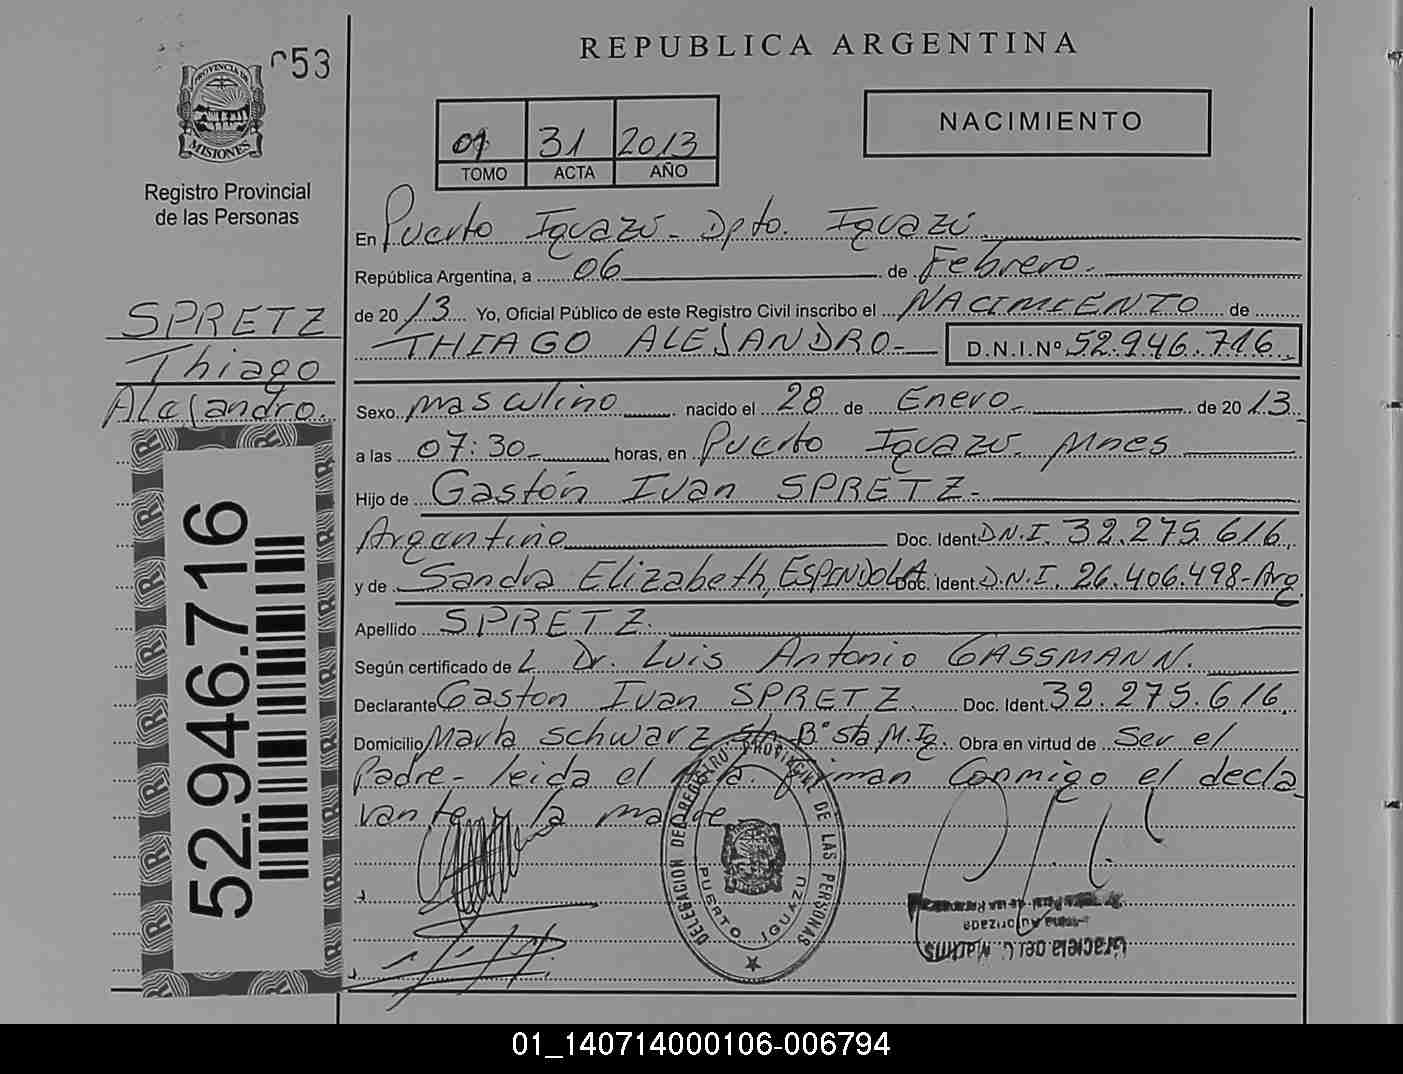 053
PROVINCIA DE
MISIONES
Registro Provincial
de las Personas
SPRETZ
Thiago
Alejandro.
52.946.716
REPUBLICA ARGENTINA
01 31 2013
TOMO ACTA AÑO
NACIMIENTO
En Puerto Iguazú - Dpto. Iguazú.
República Argentina, a 06 de Febrero.-
de 20 13 Yo, Oficial Público de este Registro Civil inscribo el NACIMIENTO de
THIAGO ALEJANDRO- D.N.I.Nº 52.946.716.
Sexo masculino nacido el 28 de Enero- de 20 13.
a las 07:30- horas, en Puerto Iguazú. Mnes
Hijo de Gastón Ivan SPRETZ-
Argentino Doc. Ident. D.N.I. 32.275.616.
y de Sandra Elizabeth, ESPINDOLA Doc. Ident. D.N.I. 26.406.498-Arg
Apellido SPRETZ.
Según certificado de L Dr. Luis Antonio GASSMANN.
Declarante Gaston Ivan SPRETZ. Doc. Ident. 32.275.616.
Domicilio Marta Schwarz S/n B° Sta M. Ig. Obra en virtud de Ser el
Padre- leida el firman Conmigo el decla
rante y la madre
DELEGACION DEL REGISTRO PROVINCIAL DE LAS PERSONAS
PUERTO IGUAZU
Autorizada
Graciela del C. Martins
01_140714000106-006794